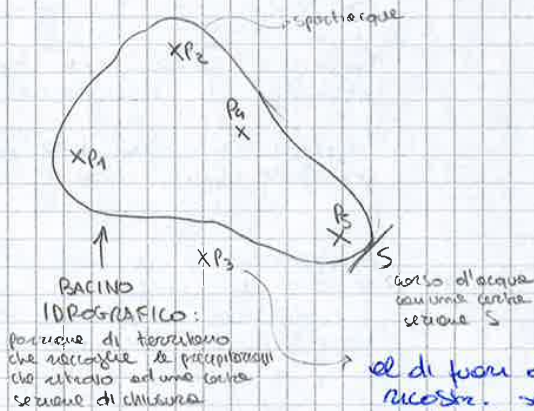 spartiacque
XP2
P4
X
XP1
P5
X
S
XP3
BACINO
IDROGRAFICO:
porzione di territorio
che raccoglie le precipitazioni
che ad una certa
sezione di chiusura
corso d'acqua
con una certa
sezione S
al di fuori
ricostr.